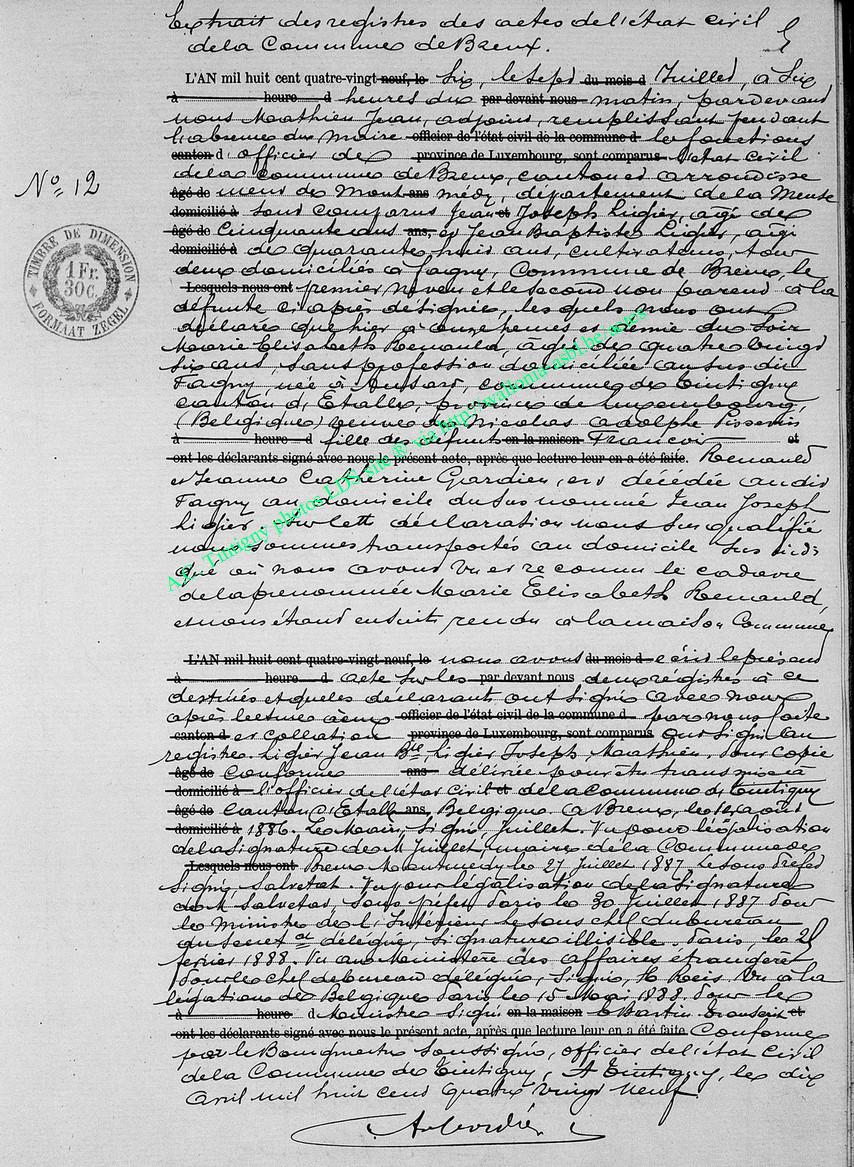 Extrait des registres des actes de l'état civil
de la Commune de Breux.
L'AN mil huit cent quatre-vingt neuf, le Six, le Sept du mois d Juillet, à Six
à heure d heures du par devant nous matin, pardevant
nous Mathieu Jean, adjoint, remplissant pendant
l'absence du Maire officier de l'état civil de la commune d les fonctions
canton d' officier de province de Luxembourg, sont comparus l'état civil
de la Commune de Breux, canton et arrondisse
No 12
âgé de ment de Mont ans médy, département de la Meuse
domicilié à sont comparus Jean et Joseph Ligier, agé de
âgé de Cinquante ans ans, et Jean Baptiste Ligier, agé
domicilié à de quarante huit ans, cultivateurs, tous
TIMBRE DE DIMENSION
1 Fr.
30 C.
FORMAAT ZEGEL
deux domiciliés à Fagny, Commune de Breux, le
Lesquels nous ont premier neveu et le second non parent à la
défunte ci après désignée, les quels nous ont
déclaré que hier à onze heures et demie du Soir
Marie Elisabeth Renauld, agée de quatre vingt
six ans, sans profession domiciliée au sus dit
Fagny, née à Ansart, commune de Tintigny
canton d'Etalle, province de Luxembourg,
(Belgique) veuve de Nicolas Adolphe
à heure d fille des défunts en la maison Francois et
ont les déclarants signé avec nous le présent acte, après que lecture leur en a été faite. Renauld
et Jeanne Catherine Gardien, est décédée au dit
Fagny au domicile du sus nommé Jean Joseph
Ligier. Sur cette déclaration nous sus qualifié
nous sommes transportés au domicile sus indi
qué où nous avons vu et reconnu le cadavre
de la prenommée Marie Elisabeth Renauld,
et nous étant ensuite rendu à la maison Commune
A.C. Tintigny photos LDS site ® via http://wallonia-asbl.be actes
L'AN mil huit cent quatre-vingt neuf, le nous avons du mois d écrit le présent
à heure d acte sur les par devant nous deux registres à ce
destinés et que les déclarants ont signé avec nous
après lecture à eux officier de l'état civil de la commune d par nous faite
canton d et collation province de Luxembourg, sont comparus Ont signé au
registre. Ligier Jean Bte, Ligier Joseph, Mathieu. Pour copie
âgé de Conforme ans délivrée pour être transmise à
domicilié à l'officier de l'état Civil et de la commune de Tintigny
âgé de Canton d'Etalle ans, Belgique à Breux, le 1er août
domicilié à 1886. Le Maire, Signé, Juillet. Vu pour légalisation
de la Signature de M Juillet, maire de la Commune de
Lesquels nous ont Breux Montmedy le 27 Juillet 1887 Le sous Préfet
Signé, Salvetat. Vu pour légalisation de la Signature
de M Salvetat, sous préfet Paris le 30 Juillet 1887 Pour
le Ministre de l'Intérieur le sous chef du bureau
du Secrét al délégué, signature illisible. Paris, le 25
février 1888. Vu au Ministère des affaires étrangères
Pour le chef de bureau délégué, Signé, H Reis Vu à la
légation de Belgique Paris le 15 Mai 1888. Pour le
à heure d Ministre Signé en la maison et
ont les déclarants signé avec nous le présent acte, après que lecture leur en a été faite. Conforme
par le Bourgmestre soussigné, officier de l'état Civil
de la Commune de Tintigny, A Tintigny, le dix
Avril mil huit cent quatre vingt neuf.